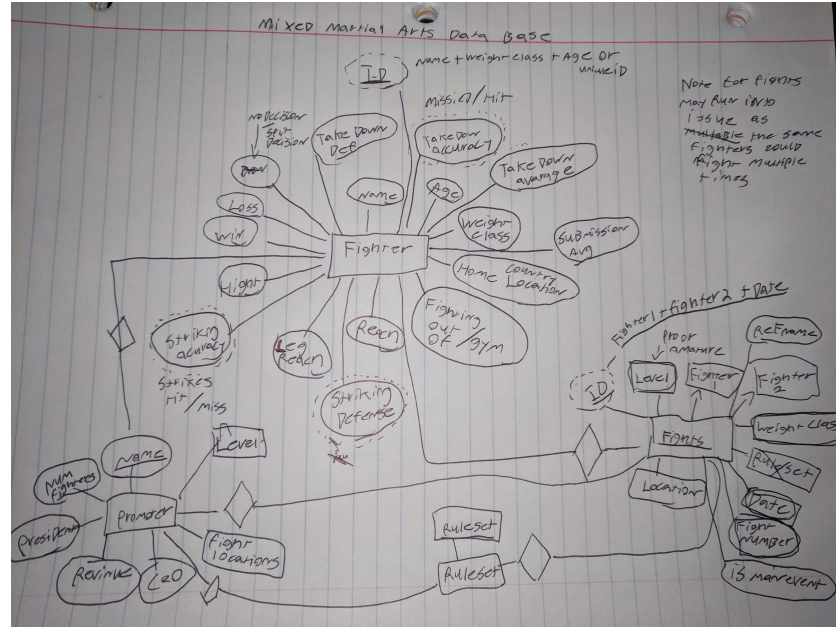 Mixed Martial Arts Data Base
I-D
Name + Weight class + Age or
uniueID
Note for fights
may run into
issue as
the same
fighters could
fight multiple
times
no Decision
Split
Decision
Take Down
Def
Missied/Hit
Take Down
accuracy
Take Down
avarage
Name
Age
Loss
Win
Weight
Class
Submission
Avg
Fighter
Hight
Home Country
Location
Striking
acuracy
Strikes
Hit/Miss
Leg
Reach
Reach
Fighting
out
of/gym
Striking
Defense
Fighter1 + fighter2 + Date
Pro or
amature
RefName
ID
Level
Fighter
Fighter
2
Fights
Weight Class
Ruleset
Location
Date
Fight
Number
is mainevent
Name
Level
Num
Fighters
Promoter
President
Fight
locations
Revinue
CeO
Ruleset
Ruleset